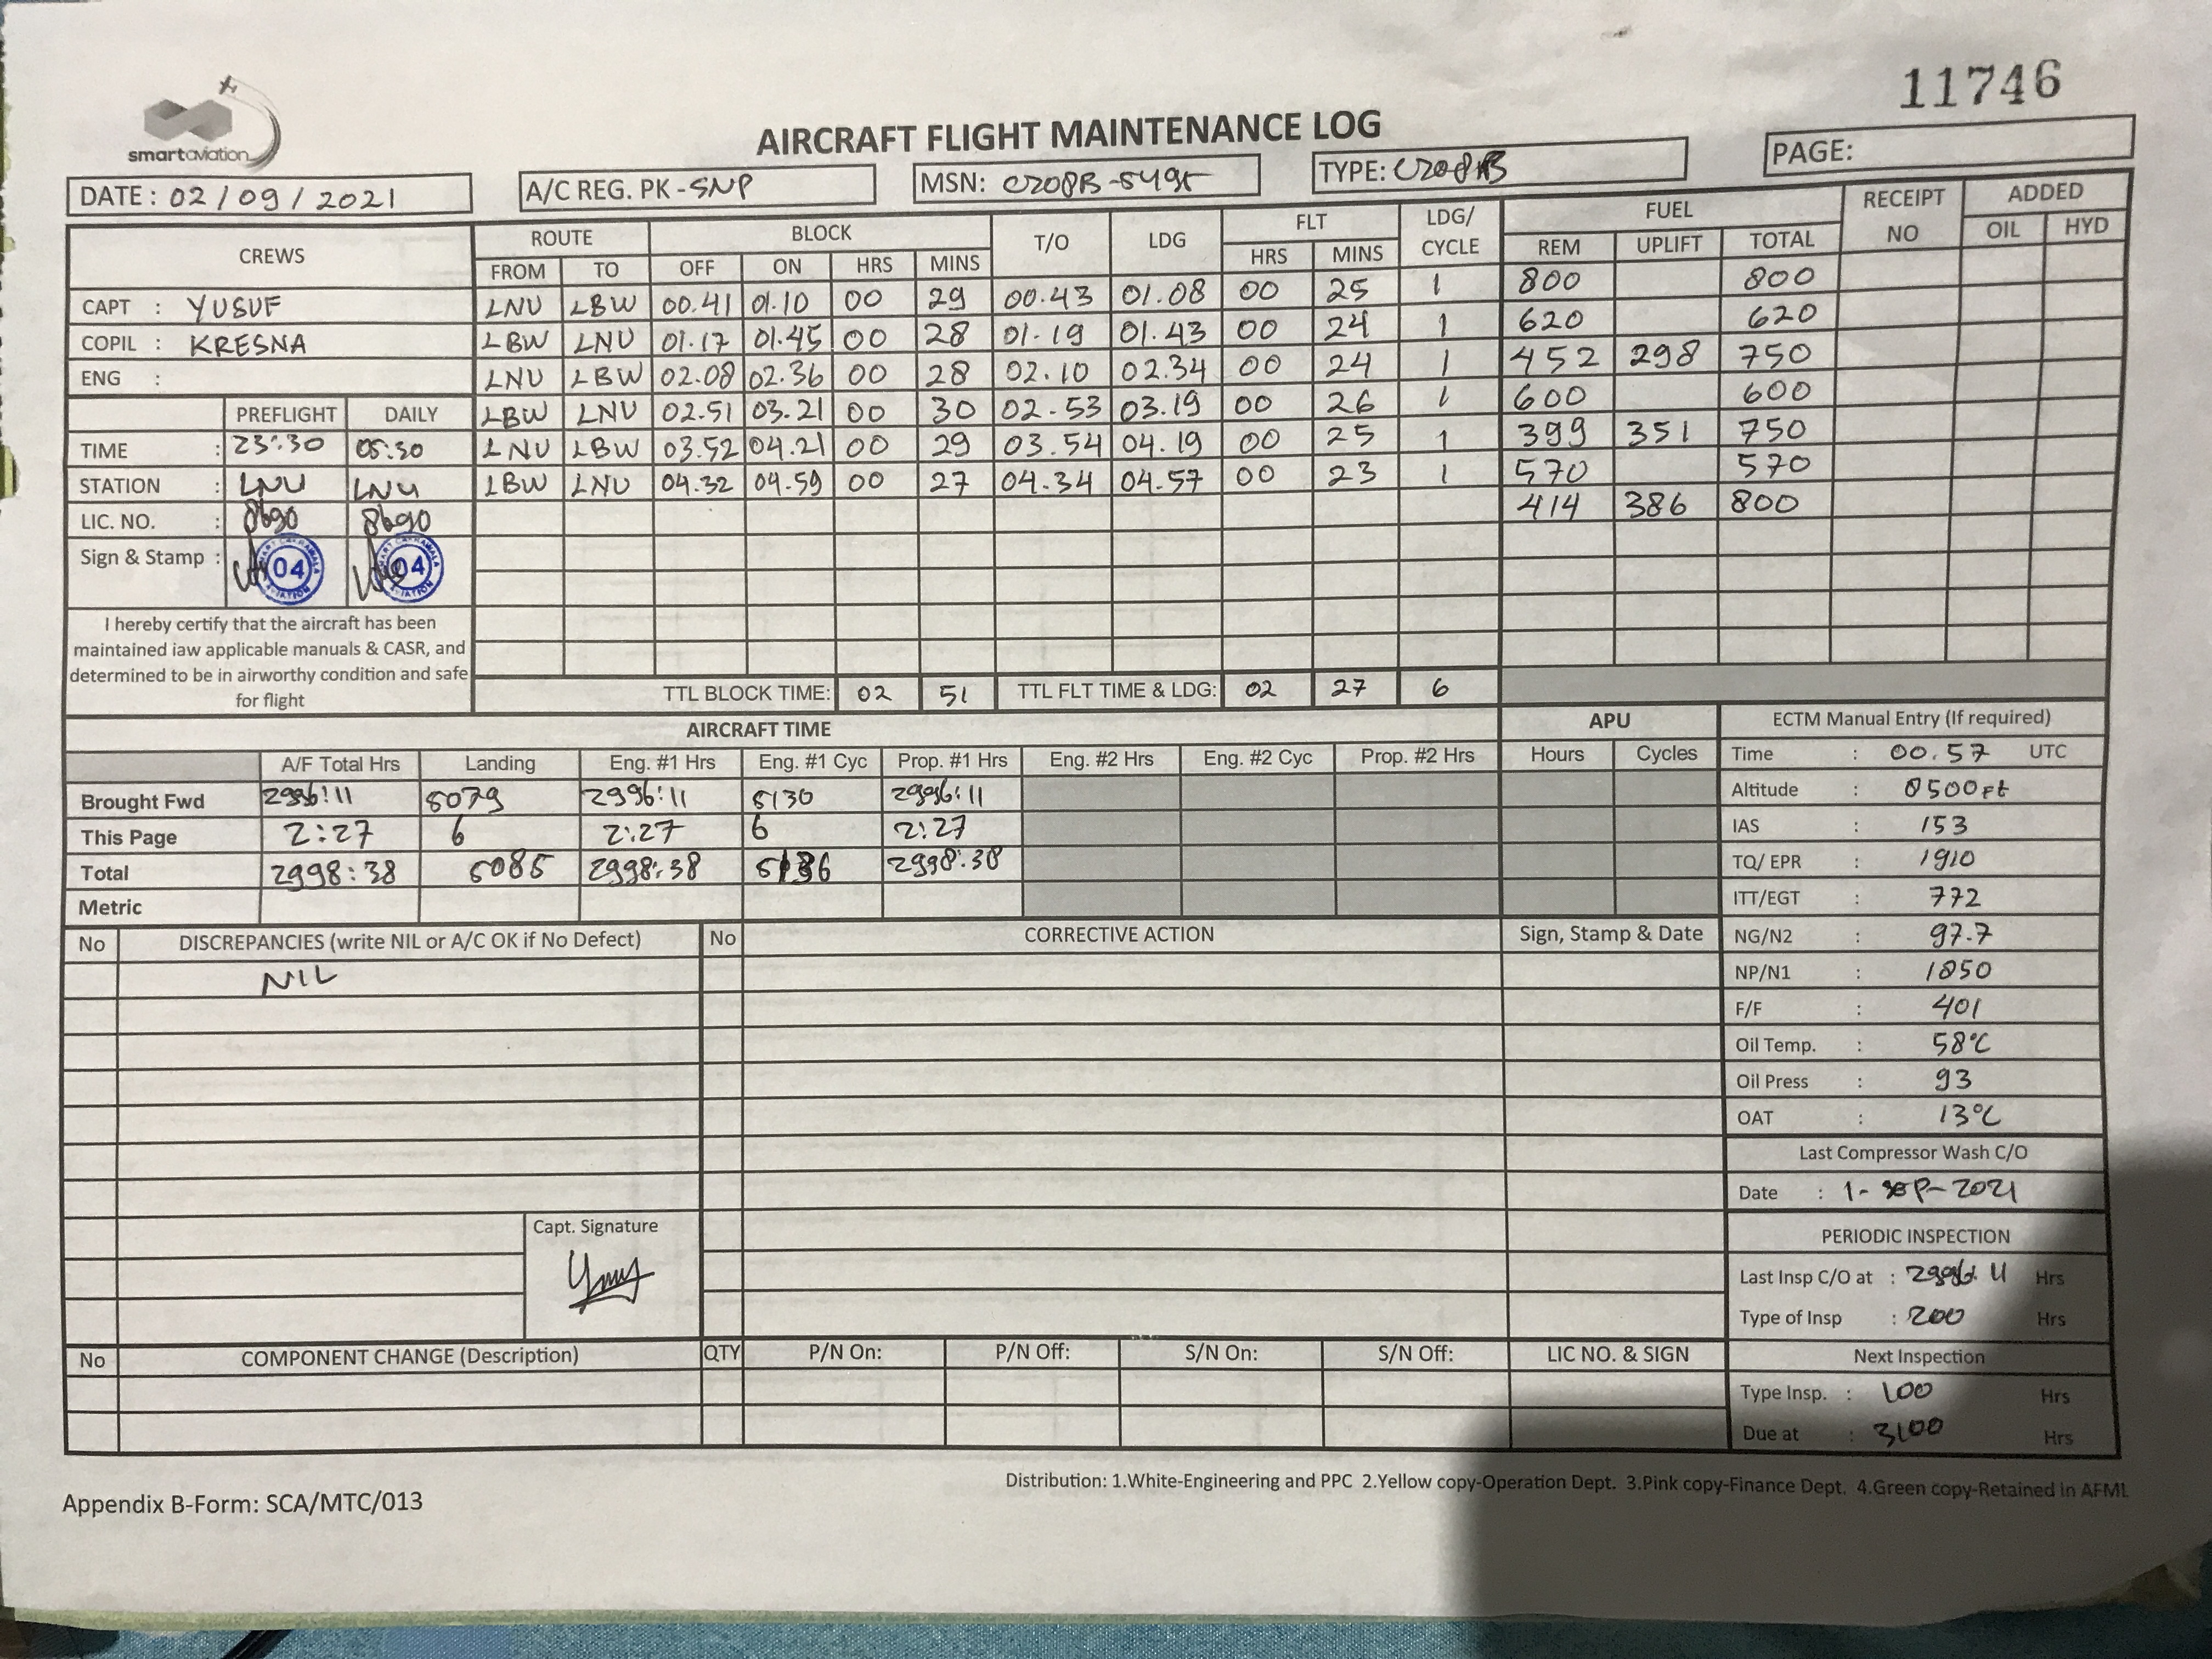 11746
smartaviation
AIRCRAFT FLIGHT MAINTENANCE LOG
DATE : 02/09/2021 A/C REG. PK-SNP MSN: C208B-5495 TYPE: C208B PAGE:
CREWS ROUTE BLOCK T/O LDG FLT LDG/ CYCLE FUEL RECEIPT NO ADDED
FROM TO OFF ON HRS MINS HRS MINS REM UPLIFT TOTAL OIL HYD
CAPT : YUSUF LNU LBW 00.41 01.10 00 29 00.43 01.08 00 25 1 800 800
COPIL : KRESNA LBW LNU 01.17 01.45 00 28 01.19 01.43 00 24 1 620 620
ENG : LNU LBW 02.08 02.36 00 28 02.10 02.34 00 24 1 452 298 750
PREFLIGHT DAILY LBW LNU 02.51 03.21 00 30 02.53 03.19 00 26 1 600 600
TIME : 23:30 05:30 LNU LBW 03.52 04.21 00 29 03.54 04.19 00 25 1 399 351 750
STATION : LNU LNU LBW LNU 04.32 04.59 00 27 04.34 04.57 00 23 1 570 570
LIC. NO. : 8690 8690 414 386 800
Sign & Stamp : 04 04
I hereby certify that the aircraft has been
maintained iaw applicable manuals & CASR, and
determined to be in airworthy condition and safe
for flight
TTL BLOCK TIME: 02 51 TTL FLT TIME & LDG: 02 27 6
AIRCRAFT TIME APU ECTM Manual Entry (If required)
A/F Total Hrs Landing Eng. #1 Hrs Eng. #1 Cyc Prop. #1 Hrs Eng. #2 Hrs Eng. #2 Cyc Prop. #2 Hrs Hours Cycles Time : 00.57 UTC
Brought Fwd 2996:11 5079 2996:11 5130 2996:11 Altitude : 8500ft
This Page 2:27 6 2:27 6 2:27 IAS : 153
Total 2998:38 5085 2998:38 5136 2998:38 TQ/ EPR : 1910
Metric ITT/EGT : 772
No DISCREPANCIES (write NIL or A/C OK if No Defect) No CORRECTIVE ACTION Sign, Stamp & Date NG/N2 : 97.7
NIL NP/N1 : 1850
F/F : 401
Oil Temp. : 58°C
Oil Press : 93
OAT : 13°C
Last Compressor Wash C/O
Date : 1-SEP-2021
Capt. Signature PERIODIC INSPECTION
Last Insp C/O at : 2996:11 Hrs
Type of Insp : 200 Hrs
No COMPONENT CHANGE (Description) QTY P/N On: P/N Off: S/N On: S/N Off: LIC NO. & SIGN Next Inspection
Type Insp. : 100 Hrs
Due at : 3100 Hrs
Distribution: 1.White-Engineering and PPC 2.Yellow copy-Operation Dept. 3.Pink copy-Finance Dept. 4.Green copy-Retained in AFML
Appendix B-Form: SCA/MTC/013